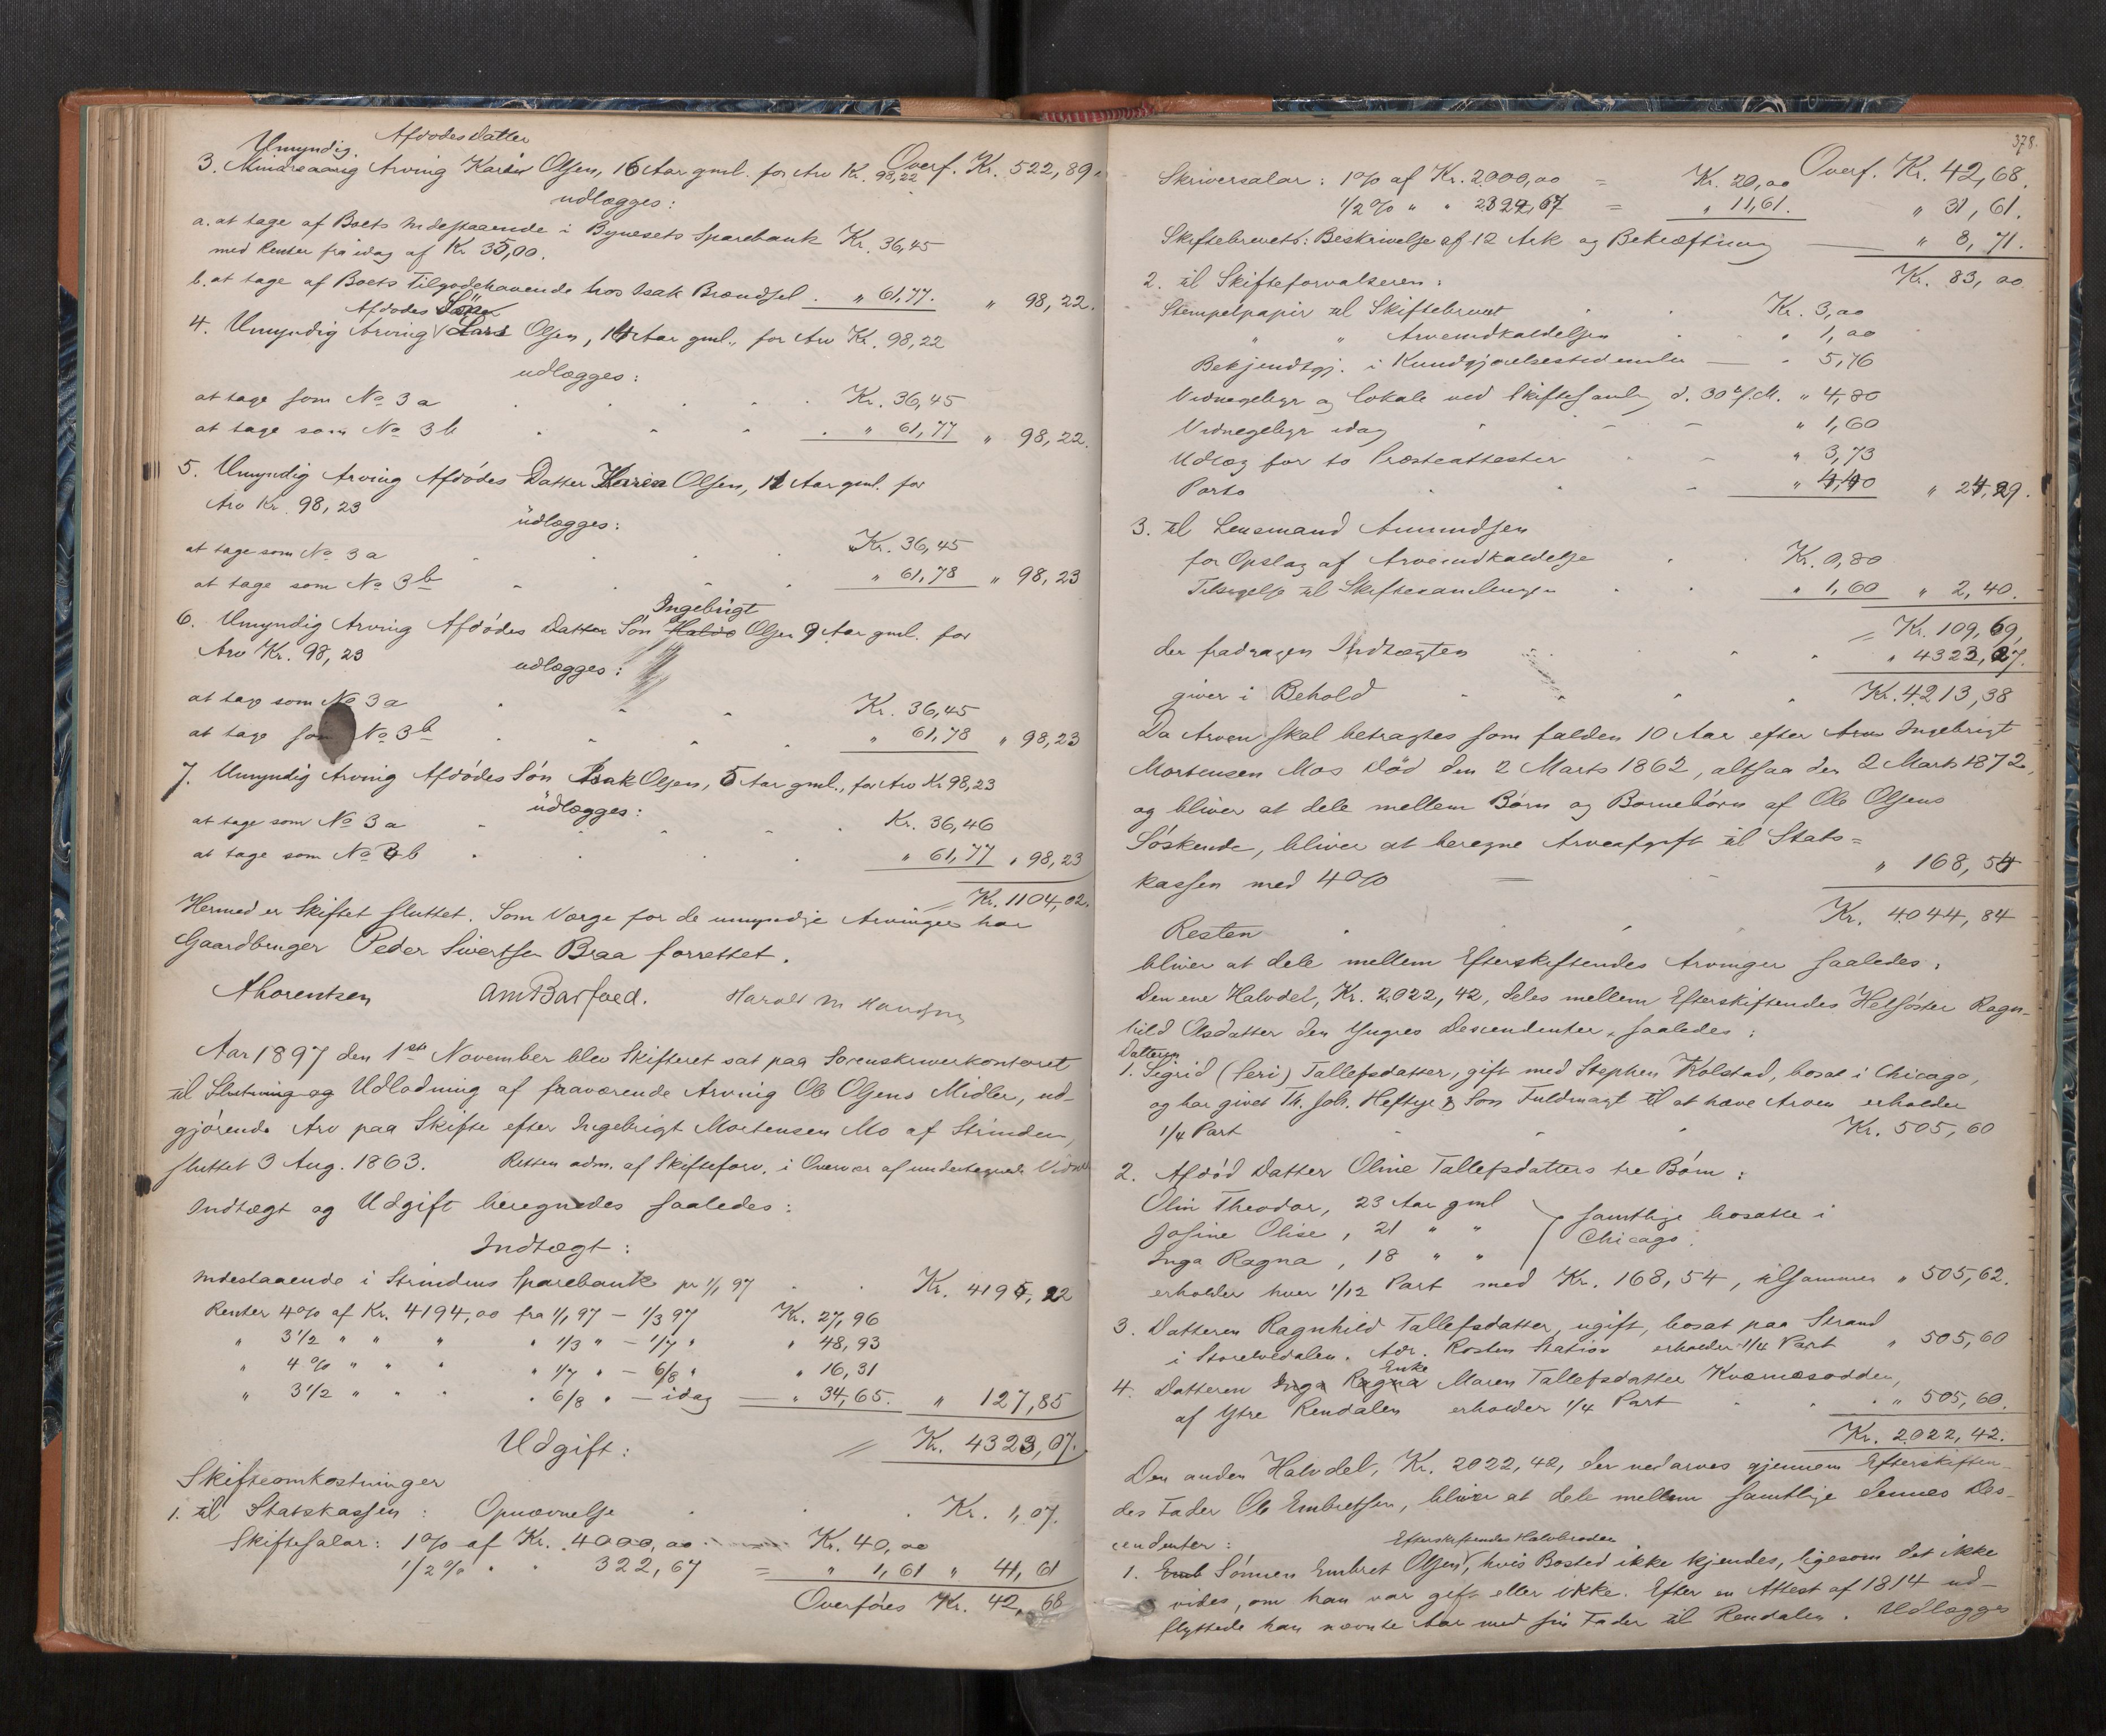 Umyndig Afdødes Datter
3. Mindreaarig Arving Karen Olsen, 16 Aar gml. for Arv Kr. 98,22 Overf. Kr. 522,89.
udlægges:
a. at tage af Boets Indestaaende i Bynesets Sparebank Kr. 36,45
med Renter fra idag af Kr. 35,00.
b. at tage af Boets Tilgodehavende hos Isak Brændsel . " 61,77. " 98,22.
Afdødes Søn
4. Umyndig Arving Lars Olsen, 14 Aar gml., for Arv Kr. 98,22
udlægges:
at tage som No 3 a Kr. 36,45
at tage som No 3 b " 61,77 " 98,22.
5. Umyndig Arving Afdødes Datter Olsen, 11 Aar gml. for
Arv Kr. 98,23
udlægges:
at tage som No 3 a Kr. 36,45
at tage som No 3 b " 61,78 " 98,23
Ingebrigt
6. Umyndig Arving Afdødes Datter Søn Olsen 9 Aar gml. for
Arv Kr. 98,23
udlægges:
at tage som No 3 a Kr. 36,45
at tage som No 3 b " 61,78 " 98,23
7. Umyndig Arving Afdødes Søn Isak Olsen, 5 Aar gml., for Arv Kr 98,23
udlægges:
at tage som No 3 a Kr. 36,46
at tage som No 3 b " 61,77 " 98,23
Kr. 1104,02.
Hermed er Skiftet sluttet. Som Værge for de umyndige Arvinger har
Gaardbruger Peder Sivertsen Braa forrettet.
A Lorentzen AmBarfoed. Harald M Hansen
Aar 1897 den 1ste November blev Skifteret sat paa Sorenskriverkontoret
til Slutning og Udlodning af fraværende Arving Ole Olsens Midler, ud-
gjørende Arv paa Skifte efter Ingebrigt Mortensen Mo af Strinden,
sluttet 3 Aug. 1863. Retten adm. af Skifteforv. i Overvær af undertegnede Vidner
Indtægt og Udgift beregnedes saaledes:
Indtægt:
Indestaaende i Strindens Sparebank pr 1/1 97 Kr. 4195,22
Renter 4% af Kr. 4194,00 fra 1/1 97 – 1/3 97 Kr. 27,96
" 3 1/2 " " " " 1/3 " – 1/7 " " 48,93
" 4 % " " " " 1/7 " – 6/8 " " 16,31
" 3 1/2 " " " " 6/8 " – idag " 34,65. " 127,85
Kr. 4323,07.
Udgift:
Skifteomkostninger
1. til Statskassen: Opnævnelse Kr. 1,07.
Skiftesalar: 1% af Kr. 4000,00 Kr. 40,00
1/2% " " 322,67 = " 1,61 " 41,61
Overføres Kr. 42,68
378.
Overf. Kr. 42,68.
Skriversalar: 1% af Kr. 2000,00 = Kr. 20,00
1/2% " " 2322,67 = " 11,61. " 31,61.
Skiftebrevets: Beskrivelse af 12 Ark og Bekræftning " 8,71.
Kr. 83,00
2. til Skifteforvalteren:
Stempelpapir til Skiftebrevet Kr. 3,00
" " Arveindkaldelsen " 1,00
Bekjendtgj. i Kundgjørelsestidende " 5,76
Vidnegebyr og Lokale ved Skiftesamling d. 30te f.M. " 4,80
Vidnegebyr idag " 1,60
Udlæg for to Præsteattester " 3,73
Porto " 4,40 " 24,29.
3. til Lensmand Amundsen
for Opslag af Arveindkaldelse Kr. 0,80
Tilsigelse til Skiftesamlingen " 1,60 " 2,40.
Kr. 109,69,
der fradragen Indtægten " 4323,07.
giver i Behold Kr. 4213,38
Da Arven skal betragtes som falden 10 Aar efter Arv Ingebrigt
Mortensen Mos Død den 2 Marts 1862, altsaa den 2 Marts 1872,
og bliver at dele mellem Børn og Børnebørn af Ole Olsens
Søskende, bliver at beregne Arveafgift til Stats=
kassen med 4% " 168,54
Resten Kr. 4044,84
bliver at dele mellem Efterskiftendes Arvinger saaledes.
Den ene Halvdel, Kr. 2022,42, deles mellem Efterskiftendes Helsøster Ragn-
hild Olsdatter den Yngres Descendenter, saaledes:
Datteren
1. Sigrid (Seri) Tallefsdatter, gift med Stephen Kolstad, bosat i Chicago,
og har givet Th. Joh. Heftye & Søn Fuldmagt til at hæve Arven erholder
1/4 Part Kr. 505,60
2. Afdød Datter Oline Tallefsdatters tre Børn:
Olin Theodor, 23 Aar gml
Josine Olise, 21 " " samtlige bosatte i
Inga Ragna, 18 " " Chicago.
erholder hver 1/12 Part med Kr. 168,54, tilsammen " 505,62.
3. Datteren Ragnhild Tallefsdatter, ugift, bosat paa Strand
i Storelvedalen. Adr. Rosten Station erholder 1/4 Part " 505,60
Enke
4. Datteren Inga Ragna Maren Tallefsdatter Kværnæsodden,
af Ytre Rendalen erholder 1/4 Part " 505,60.
Kr. 2022,42.
Den anden Halvdel, Kr. 2022,42, der nedarves gjennem Efterskiften-
des Fader Ole Embretsen, bliver at dele mellem samtlige dennes Des-
cendenter:
Efterskiftendes Halvbroder
1. Emb Sønnen Embret Olsen, hvis Bosted ikke kjendes, ligesom det ikke
vides, om han var gift eller ikke. Efter en Attest af 1814 ud-
flyttede han nævnte Aar med sin Fader til Rendalen. Udlægges